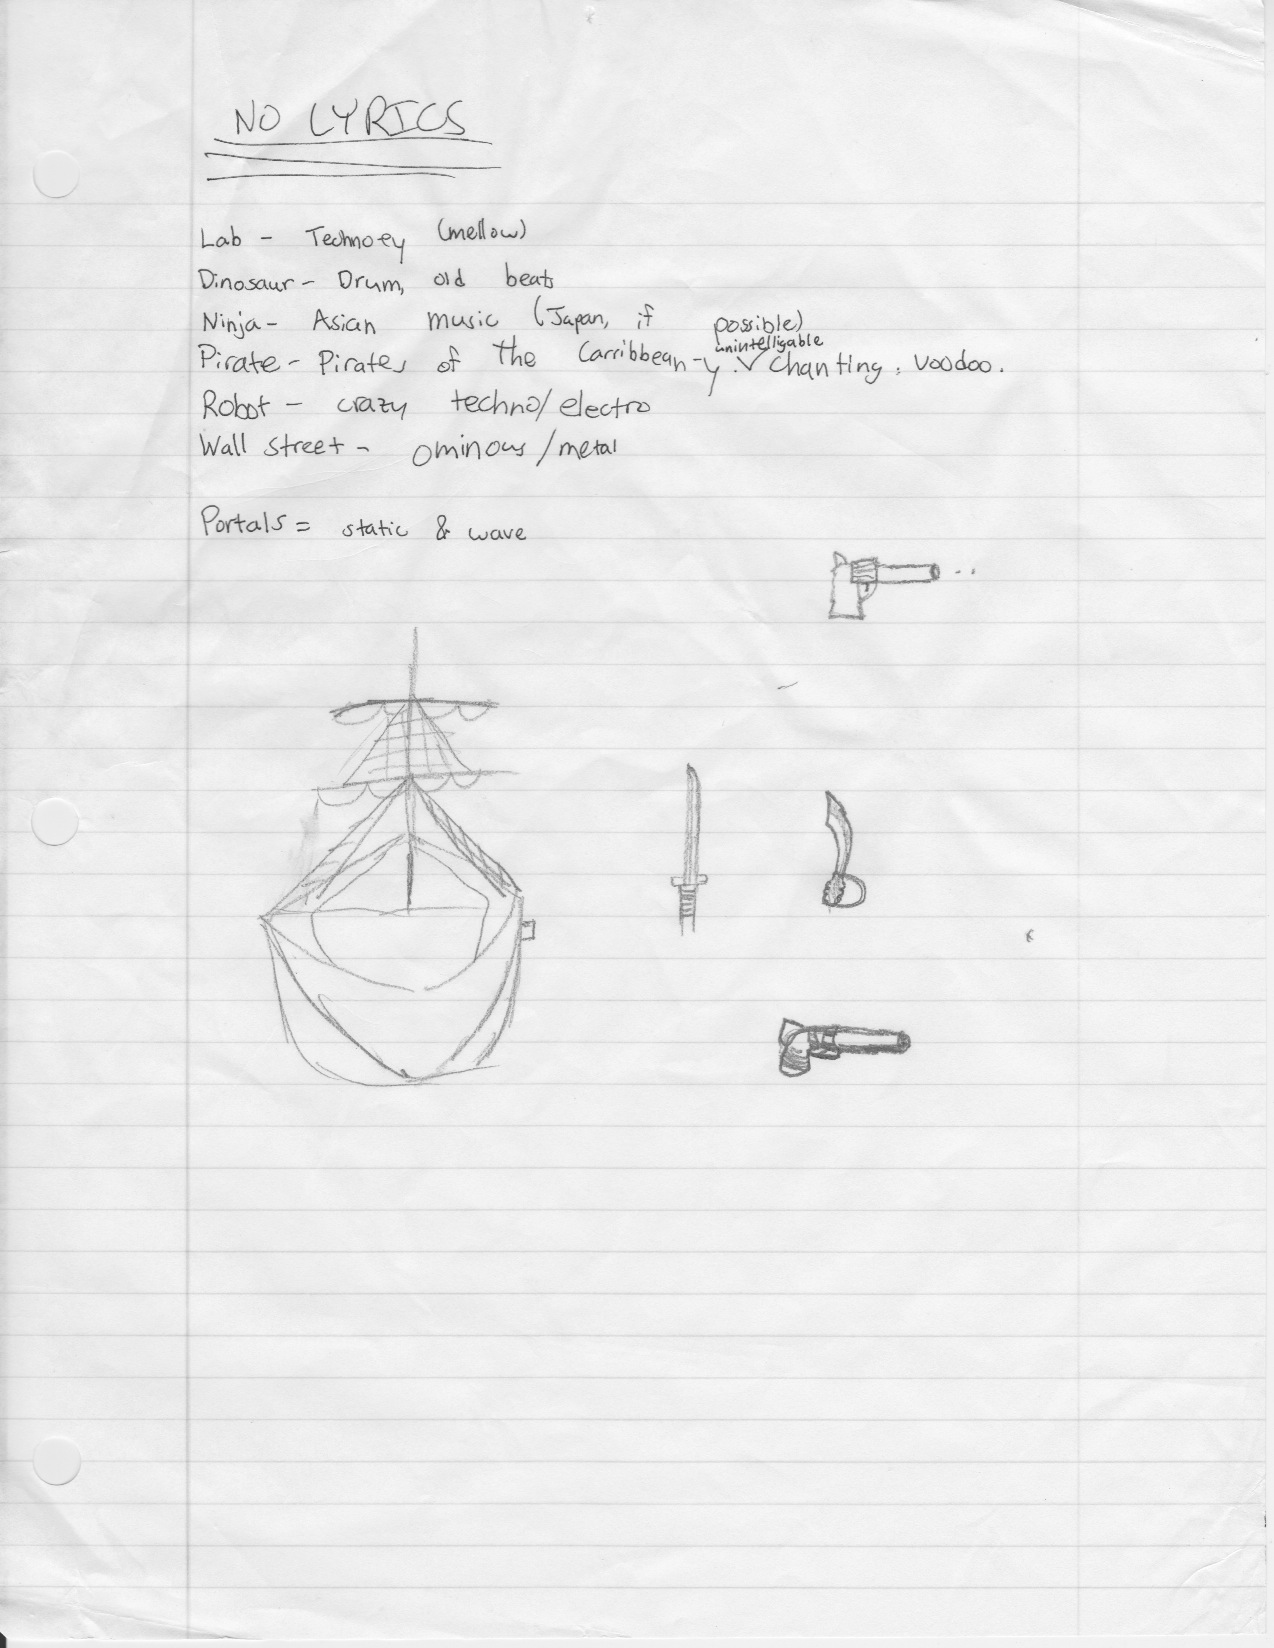 NO LYRICS
Lab - Techno-ey (mellow)
Dinosaur - Drum, old beats
Ninja - Asian music (Japan, if possible)
Pirate - Pirates of the Carribbean-y. unintelligable chanting, voodoo.
Robot - crazy techno/electro
Wall street - ominous/metal
Portals = static & wave